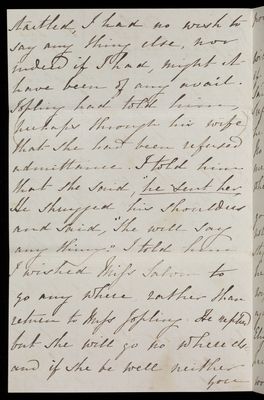 startled, I had no wish to
say any thing else, nor
indeed if I had, might it
have been of any avail.
Jopling had told him,
perhaps through his wife,
that she had been refused
admittance. I told him
that she said, "he sent her.
He shrugged his shoulders
and said, "She will say
any thing." I told him
I wished Miss to
go any where rather than
return to Miss Jopling. He replied
but she will go no where else
and if she be well neither
you